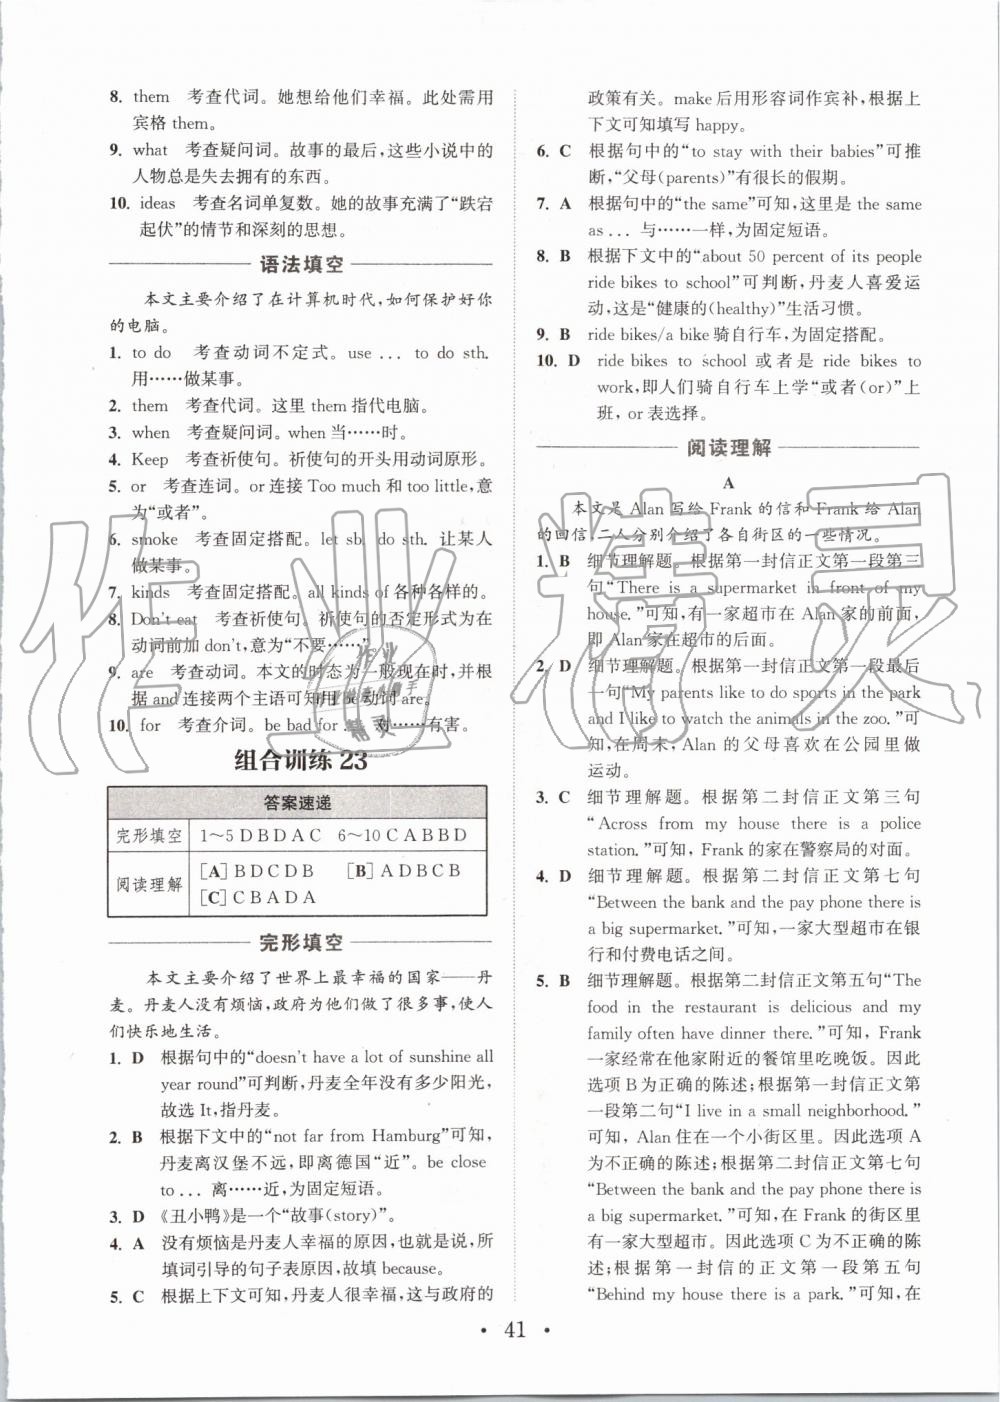 8. them 考查代词。她想给他们幸福。此处需用
宾格 them。
9. what 考查疑问词。故事的最后,这些小说中的
人物总是失去拥有的东西。
10. ideas 考查名词单复数。她的故事充满了“跌宕
起伏”的情节和深刻的思想。
语法填空
本文主要介绍了在计算机时代,如何保护好你
的电脑。
1. to do 考查动词不定式。use ... to do sth.
用……做某事。
2. them 考查代词。这里 them 指代电脑。
3. when 考查疑问词。when 当……时。
4. Keep 考查祈使句。祈使句的开头用动词原形。
5. or 考查连词。or 连接 Too much 和 too little,意
为“或者”。
6. smoke 考查固定搭配。let sb. do sth. 让某人
做某事。
7. kinds 考查固定搭配。all kinds of 各种各样的。
8. Don't eat 考查祈使句。祈使句的否定形式为在
动词前加 don't,意为“不要……”。
9. are 考查动词。本文的时态为一般现在时,并根
据 and 连接两个主语可知用 be 动词 are。
10. for 考查介词。be bad for ... 对……有害。
组合训练 23
答案速递
完形填空 1～5 D B D A C 6～10 C A B B D
阅读理解 [A] B D C D B [B] A D B C B
[C] C B A D A
完形填空
本文主要介绍了世界上最幸福的国家——丹
麦。丹麦人没有烦恼,政府为他们做了很多事,使人
们快乐地生活。
1. D 根据句中的“doesn't have a lot of sunshine all
year round”可判断,丹麦全年没有多少阳光,
故选 It,指丹麦。
2. B 根据下文中的“not far from Hamburg”可知,
丹麦离汉堡不远,即离德国“近”。be close
to ... 离……近,为固定短语。
3. D 《丑小鸭》是一个“故事(story)”。
4. A 没有烦恼是丹麦人幸福的原因,也就是说,所
填词引导的句子表原因,故填 because。
5. C 根据上下文可知,丹麦人很幸福,这与政府的
政策有关。make 后用形容词作宾补,根据上
下文可知填写 happy。
6. C 根据句中的“to stay with their babies”可推
断,“父母(parents)”有很长的假期。
7. A 根据句中的“the same”可知,这里是 the same
as ... 与……一样,为固定短语。
8. B 根据下文中的“about 50 percent of its people
ride bikes to school”可判断,丹麦人喜爱运
动,这是“健康的(healthy)”生活习惯。
9. B ride bikes/a bike 骑自行车,为固定搭配。
10. D ride bikes to school 或者是 ride bikes to
work,即人们骑自行车上学“或者(or)”上
班,or 表选择。
阅读理解
A
本文是 Alan 写给 Frank 的信和 Frank 给 Alan
的回信,二人分别介绍了各自街区的一些情况。
1. B 细节理解题。根据第一封信正文第一段第三
句“There is a supermarket in front of my
house.”可知,有一家超市在 Alan 家的前面,
即 Alan 家在超市的后面。
2. D 细节理解题。根据第一封信正文第一段最后
一句“My parents like to do sports in the park
and I like to watch the animals in the zoo.”可
知,在周末,Alan 的父母喜欢在公园里做
运动。
3. C 细节理解题。根据第二封信正文第三句
“Across from my house there is a police
station.”可知,Frank 的家在警察局的对面。
4. D 细节理解题。根据第二封信正文第七句
“Between the bank and the pay phone there is
a big supermarket.”可知,一家大型超市在银
行和付费电话之间。
5. B 细节理解题。根据第二封信正文第五句“The
food in the restaurant is delicious and my
family often have dinner there.”可知, Frank
一家经常在他家附近的餐馆里吃晚饭。因此
选项 B 为正确的陈述;根据第一封信正文第
一段第二句“I live in a small neighborhood.”
可知, Alan 住在一个小街区里。因此选项 A
为不正确的陈述;根据第二封信正文第七句
“Between the bank and the pay phone there is
a big supermarket.”可知,在 Frank 的街区里
有一家大型超市。因此选项 C 为不正确的陈
述;根据第一封信的正文第一段第五句
“Behind my house there is a park.”可知,在
• 41 •
作业精灵